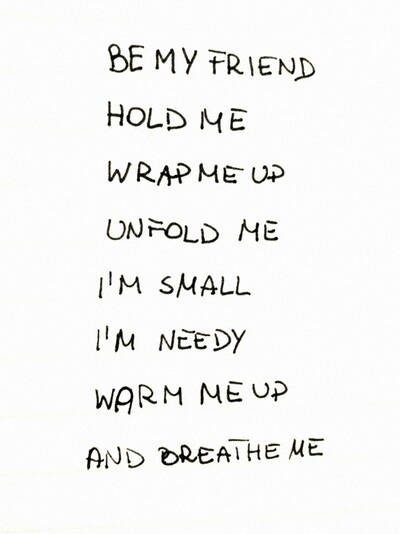 BE MY FRIEND
HOLD ME
WRAP ME UP
UNFOLD ME
I'M SMALL
I'M NEEDY
WARM ME UP
AND BREATHE ME